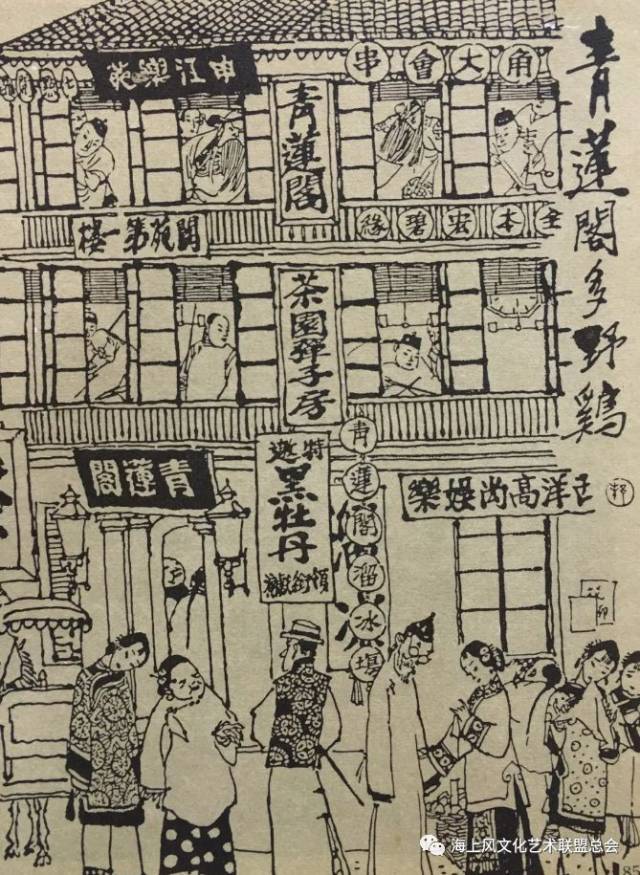 青蓮閣多野鷄
角大會串
申江樂苑
青蓮閣
全本宏碧緣
閬苑第一樓
茶園彈子房
青蓮閣
特邀
黑牡丹
領銜獻
青蓮閣溜冰場
洋高尚娛樂
海上风文化艺术联盟总会
85